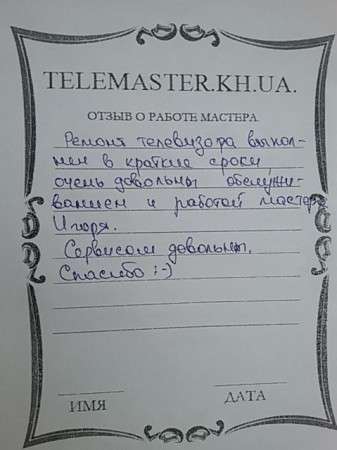 TELEMASTER.KH.UA.
ОТЗЫВ О РАБОТЕ МАСТЕРА
Ремонт телевизора выпол-
нен в краткие сроки
очень довольны обслужи-
ванием и работой мастера
Игоря.
Сервисом довольны.
Спасибо :-)
ИМЯ
ДАТА